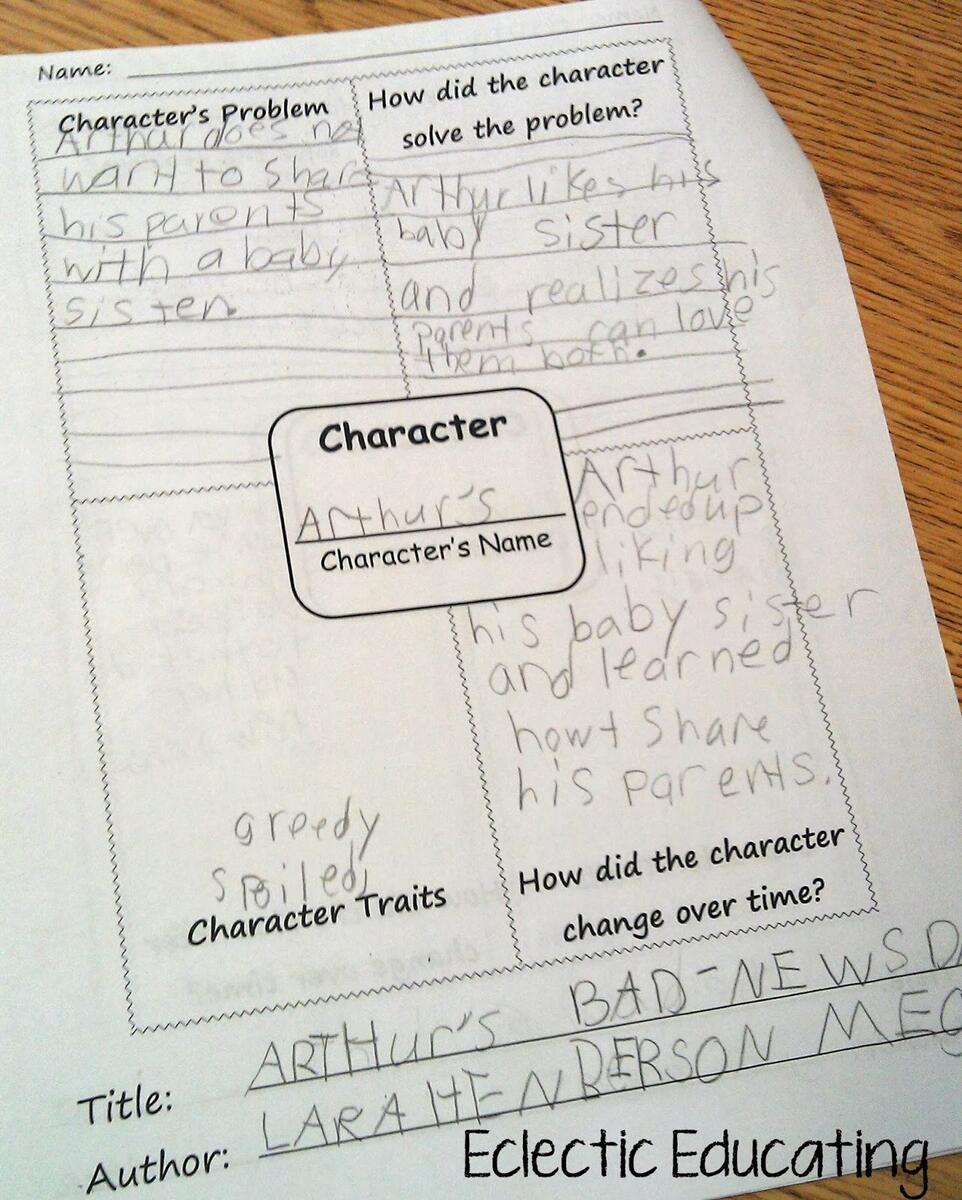 Name:
Character's Problem
Arthur does not
want to share
his parents
with a baby
sister.
How did the character
solve the problem?
Arthur likes his
baby sister
and realizes his
parents can love
them both.
Character
Arthur's
Character's Name
greedy
spoiled
Character Traits
Arthur
ended up
liking
his baby sister
and learned
howt Share
his parents.
How did the character
change over time?
Title: ARTHur's BAD-NEWS
Author: LARA HENDERSON
Eclectic Educating